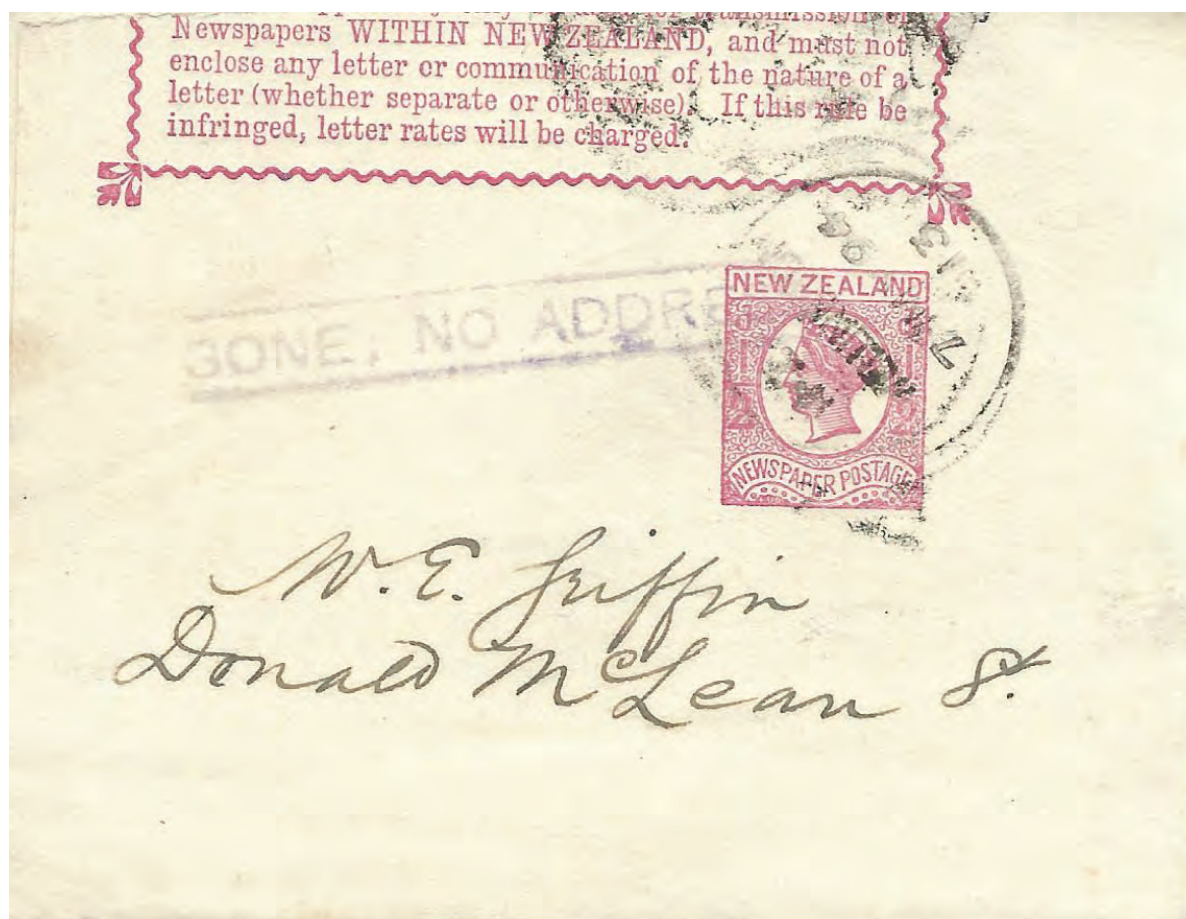 transmission of
Newspapers WITHIN NEW ZEALAND, and must not
enclose any letter or communication of the nature of a
letter (whether separate or otherwise). If this rule be
infringed, letter rates will be charged.
GONE, NO ADDRE
NEW ZEALAND
1/2 1/2
NEWSPAPER POSTAGE
W. E. Griffin
Donald McLean St.